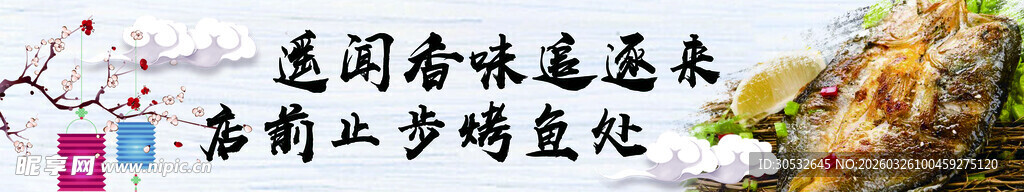 遥闻香味追逐来
店前止步烤鱼处
昵享网 www.nipic.cn
www.nipic.com
ID:30532645 NO:20260326100459275120